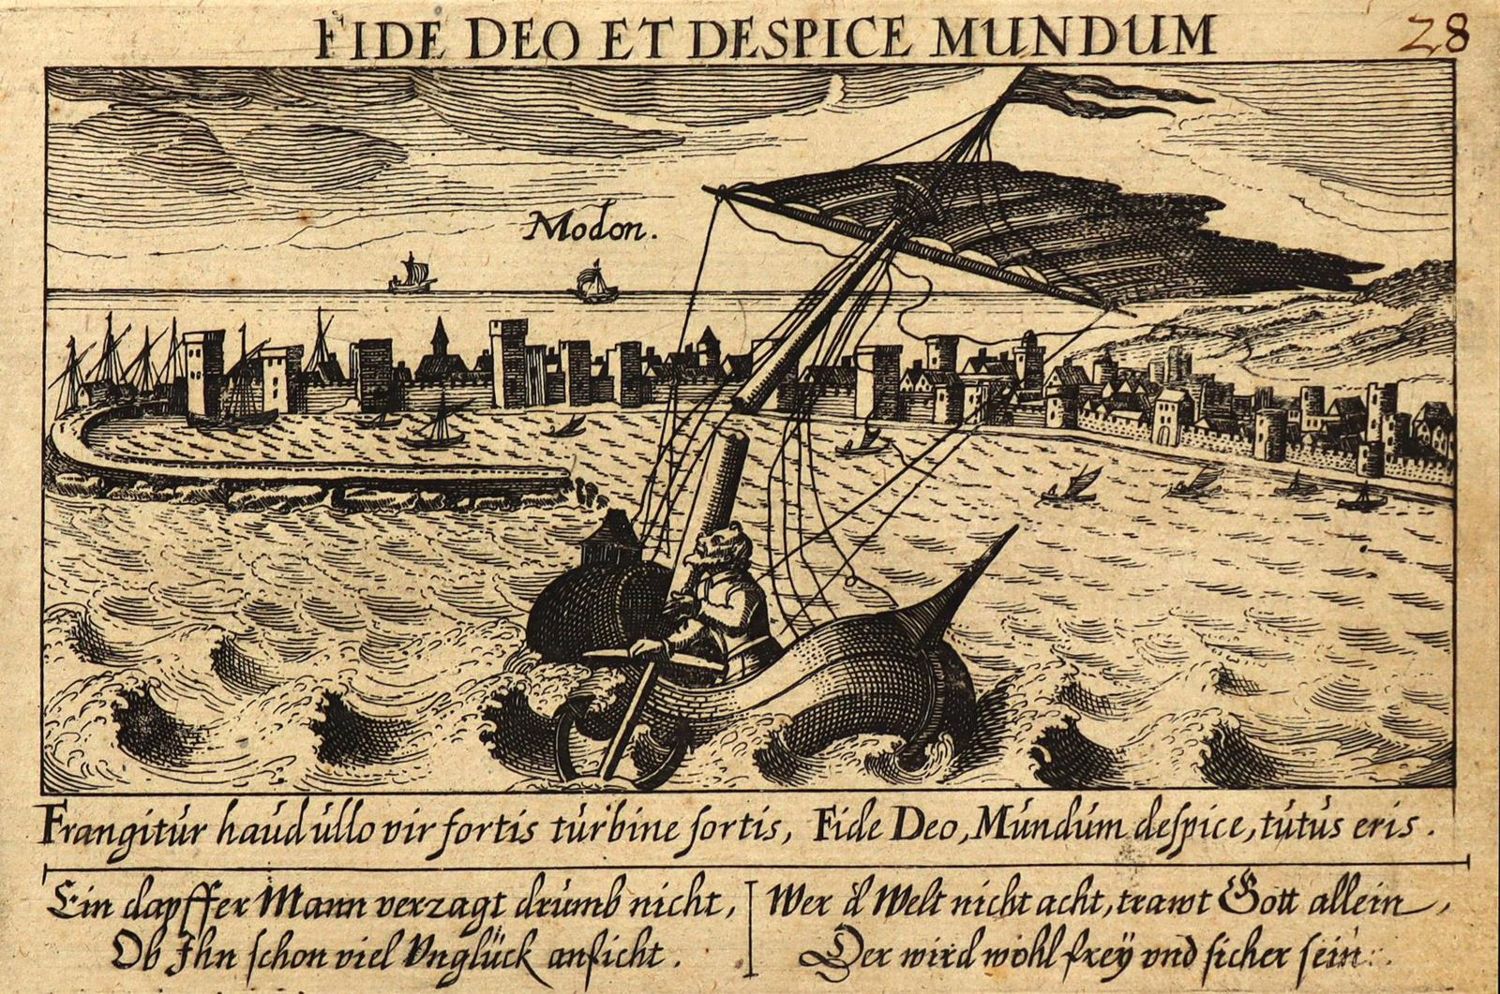 FIDE DEO ET DESPICE MUNDUM
28
Modon.
Frangitúr haúd úllo vir fortis túrbine ſortis, Fide Deo, Múndúm deſpice, tútús eris.
Ein dapffer Mann verzagt drúmb nicht,
Ob Ihn ſchon viel Vnglück anficht.
Wer d' Welt nicht acht, trawt Gott allein,
Der wird wohl freÿ vnd ſicher ſein.